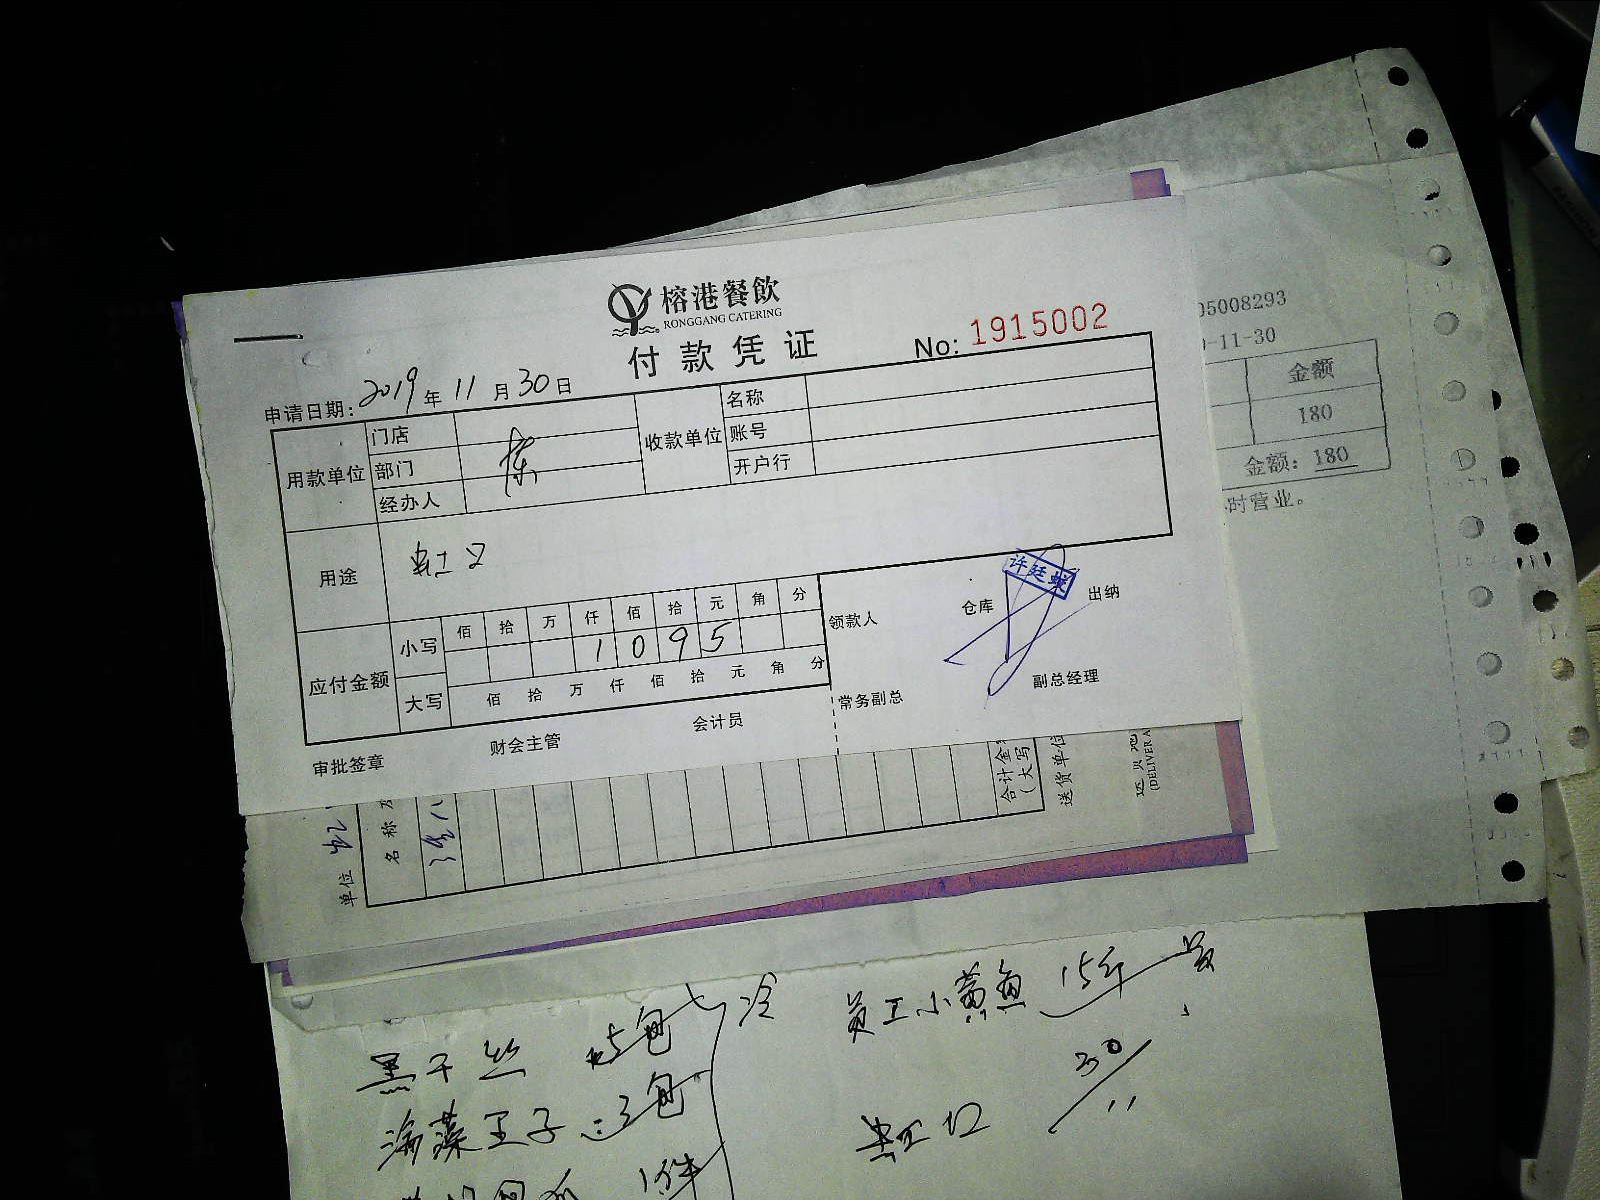 榕港餐飲
RONGGANG CATERING
付款凭证
No: 1915002
申请日期: 2019 年 11 月 30 日
用款单位 门店 收款单位 名称
部门 账号
经办人 开户行
用途
应付金额 小写 佰 拾 万 仟 佰 拾 元 角 分
1 0 9 5
大写 佰 拾 万 仟 佰 拾 元 角 分
领款人 仓库 出纳
许廷蛟
常务副总 副总经理
审批签章 财会主管 会计员
05008293
-11-30
金额
180
金额: 180
时营业。
单位
名称
合计金
(大写
送货单位
(DELIVER A
黑干丝 5包 冷
3包
1件
员工小黄鱼 15斤
30/11